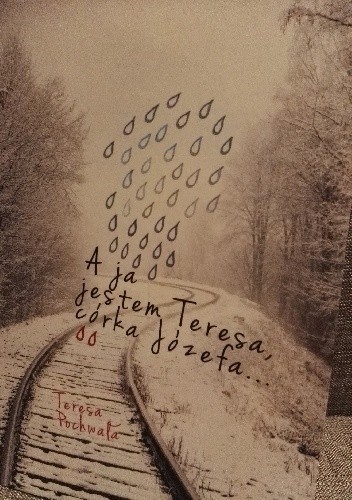 A ja
jestem Teresa,
córka Józefa...
Teresa
Pochwała